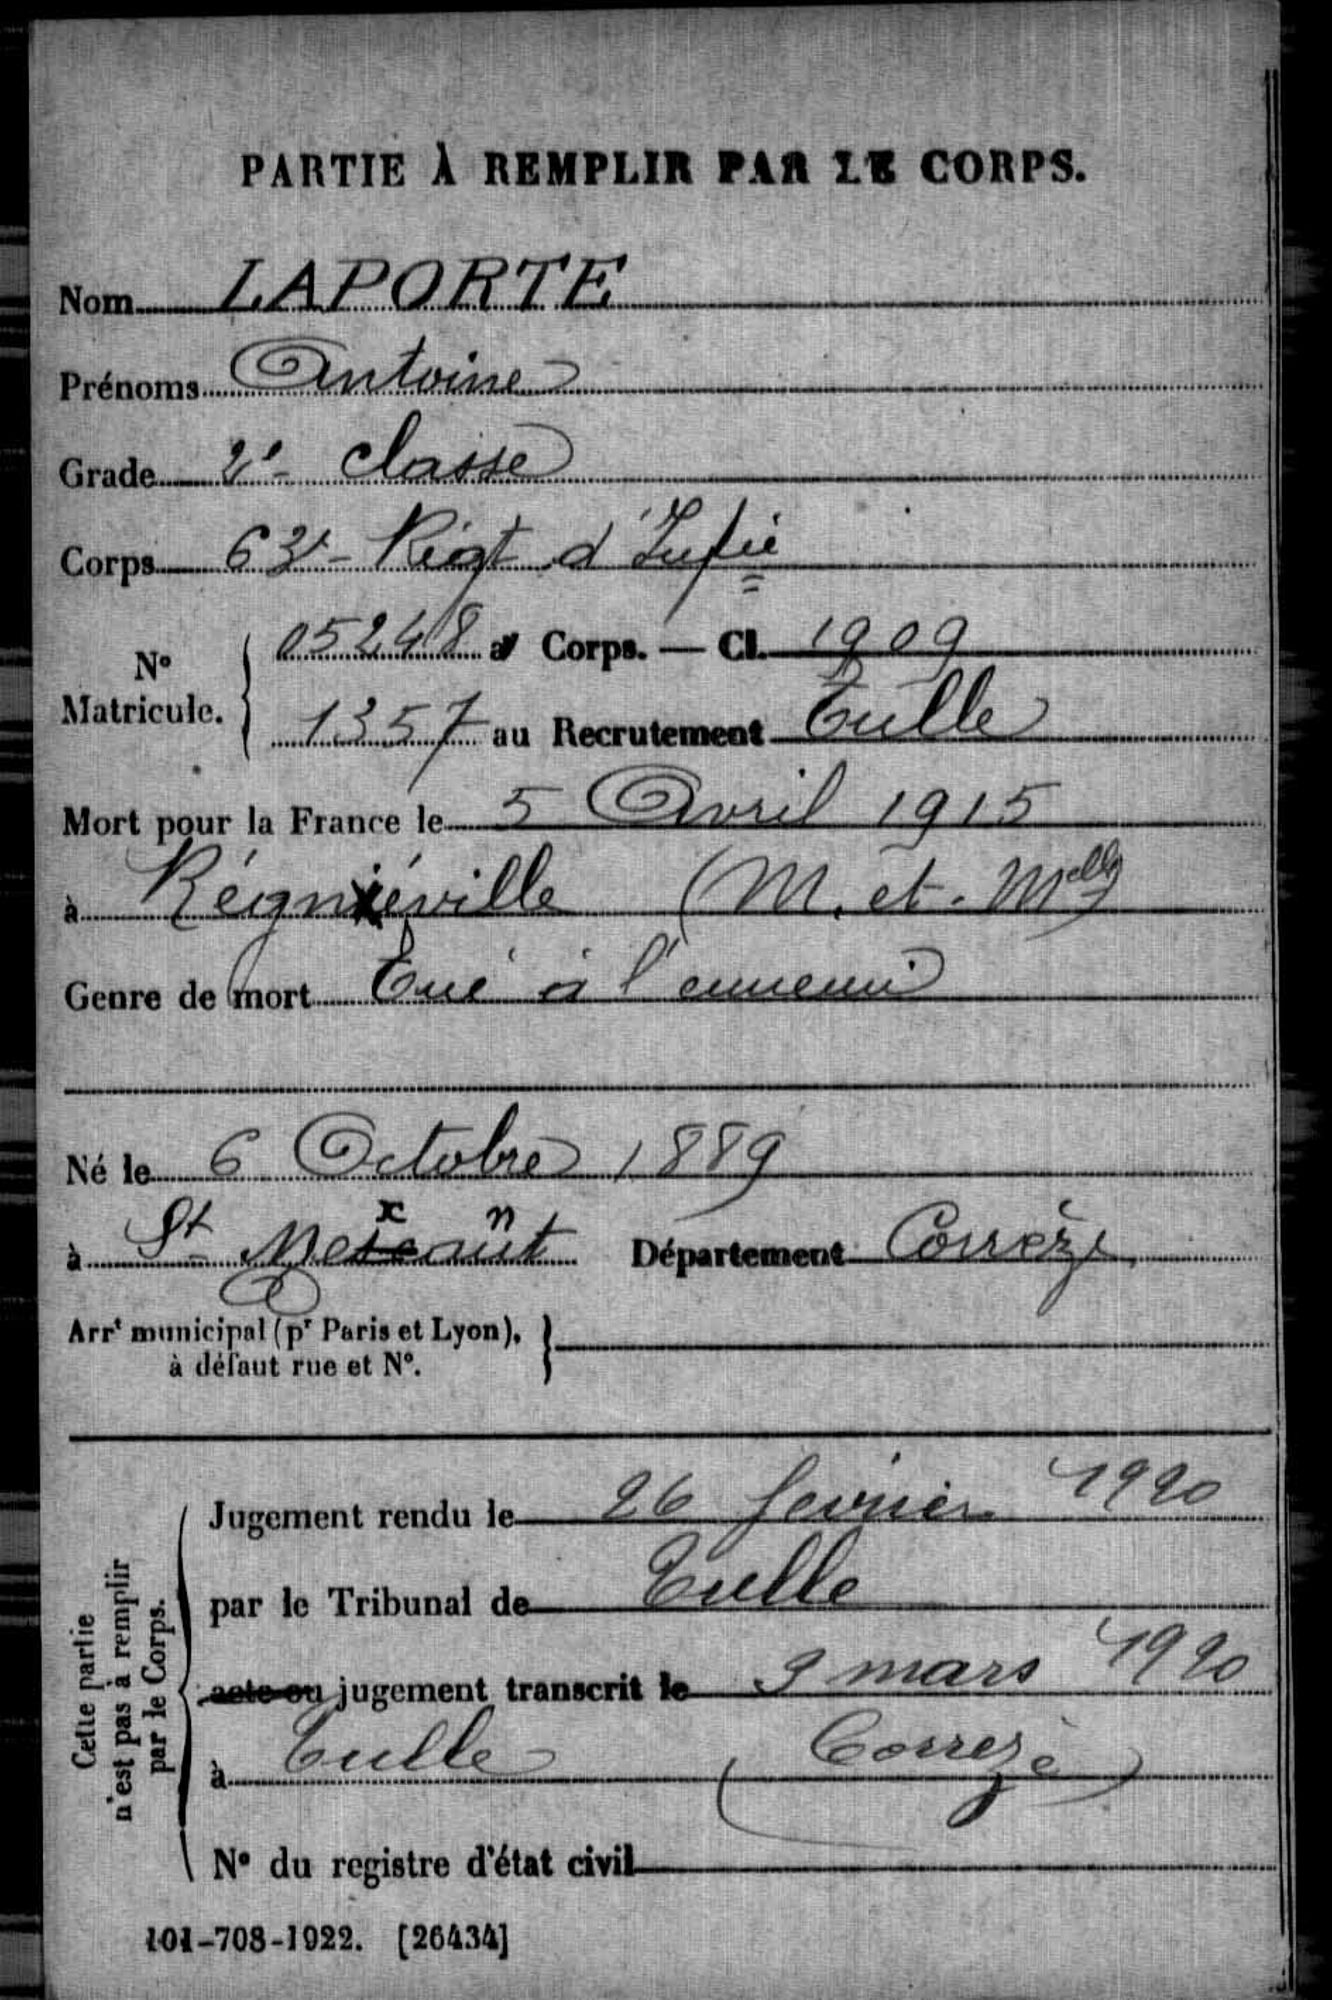 PARTIE À REMPLIR PAR LE CORPS.
Nom LAPORTE
Prénoms Antoine
Grade 2e classe
Corps 63e Régt d'Infie
N° Matricule. { 05248 au Corps. — Cl. 1909
1357 au Recrutement Tulle
Mort pour la France le 5 Avril 1915
à Régniéville (M. et. Melle)
Genre de mort Tué à l'ennemi
Né le 6 Octobre 1889
x n
à St Département Corrèze
Arrt municipal (pr Paris et Lyon), }
à défaut rue et N°.
Cette partie
n'est pas à remplir
par le Corps.
Jugement rendu le 26 fevrier 1920
par le Tribunal de Tulle
acte ou jugement transcrit le 9 mars 1920
à Tulle (Corrèze)
N° du registre d'état civil
101-708-1922. [26434]